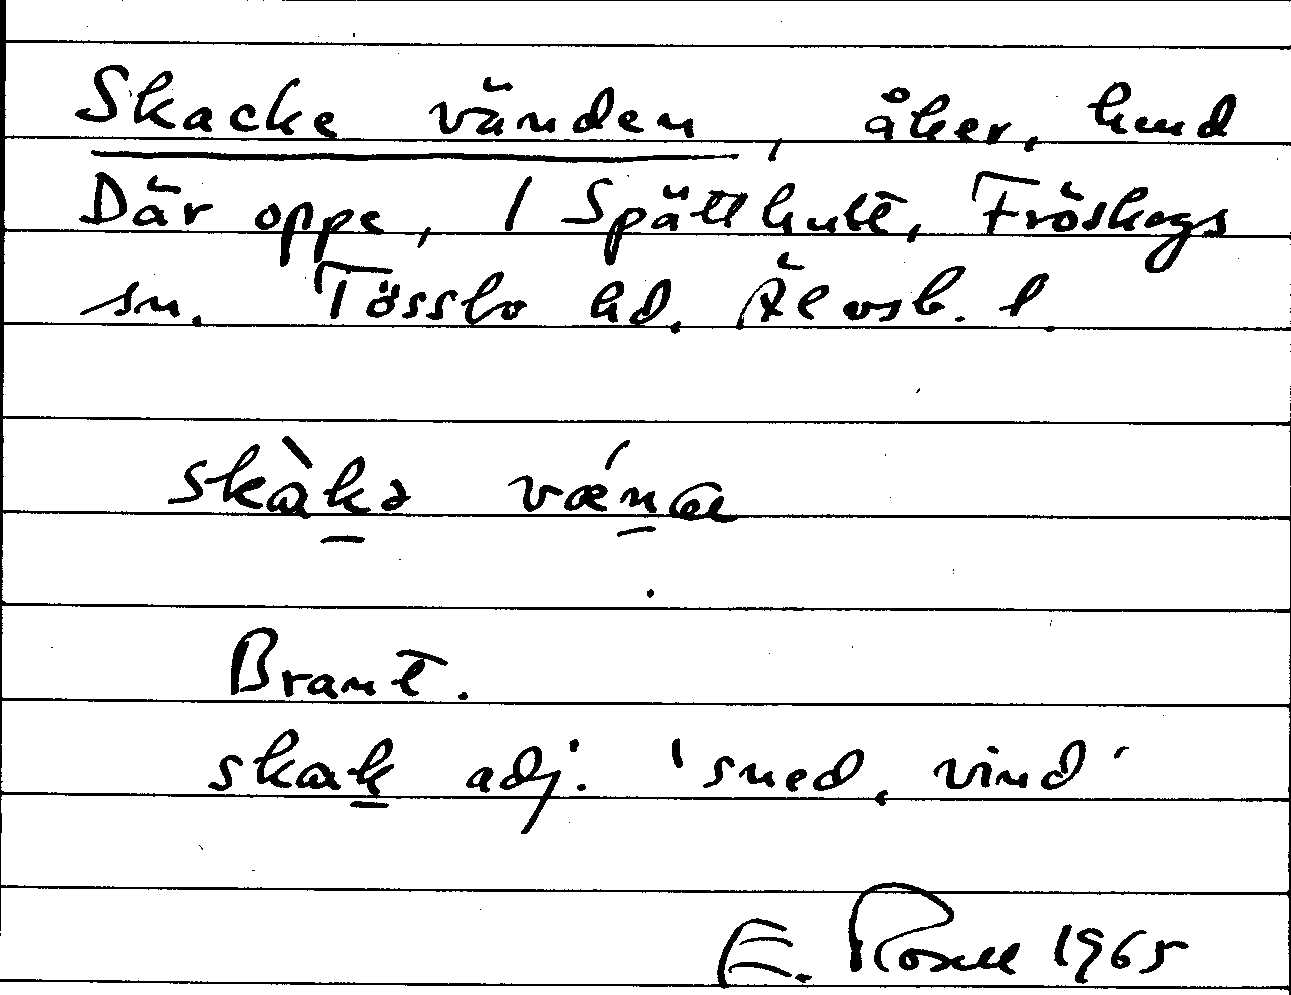 Skacke vänden, åker, hmd
Där oppe, 1 Spätthult, Fröskogs
sn. Tössbo hd. Älvsb. l.
skàkə vǽnɑ
Brant.
skak adj. 'sned, vind'
E. Rosell 1965